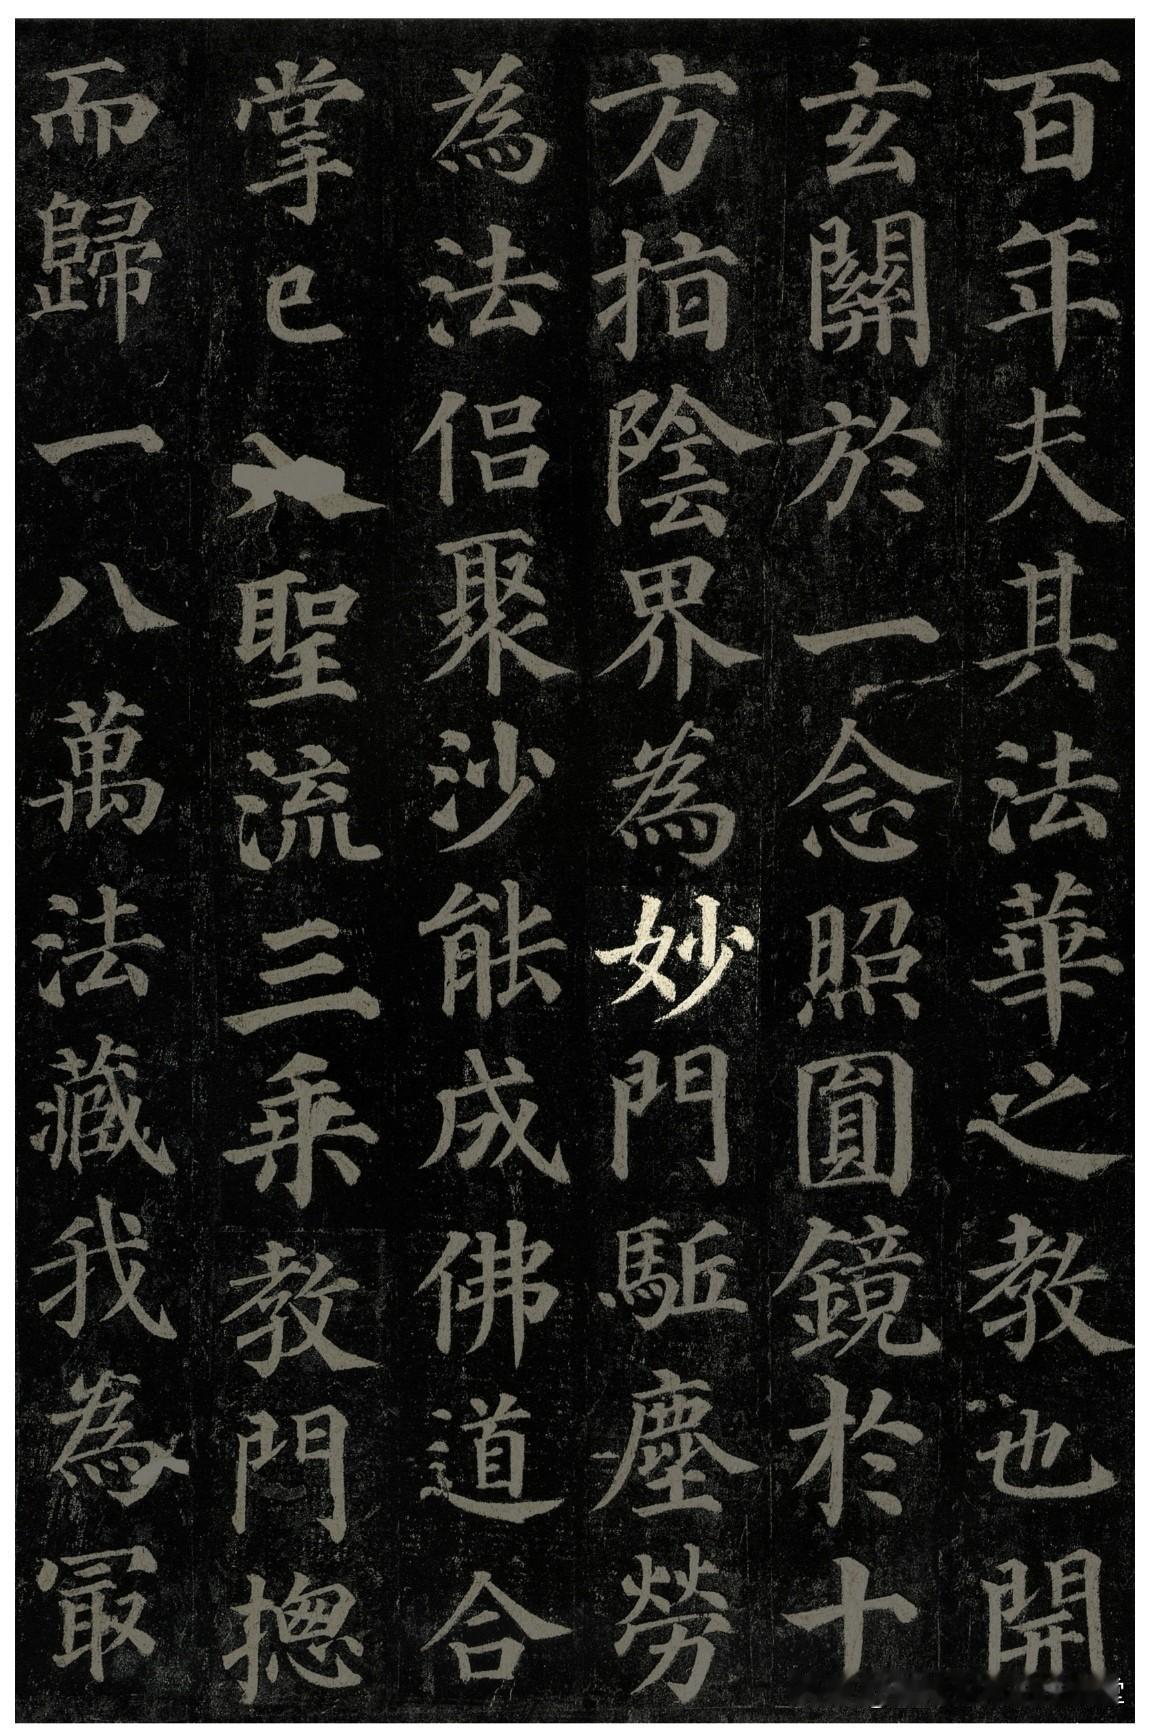 百年夫其法華之教也開
玄關於一念照圓鏡於十
方指陰界為妙門駈塵勞
為法侶聚沙能成佛道合
掌已入聖流三乘教門揔
而歸一八萬法藏我為冣